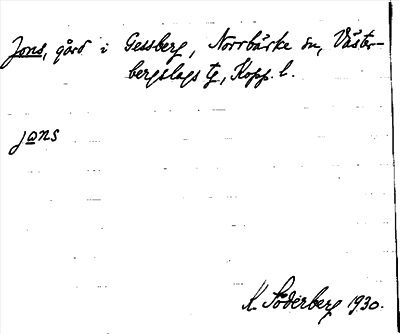 Jons, gård i Gessberg, Norrbärke sn, Väster-
bergslags tg, Kopp. l.
jons
K. Söderberg 1930.